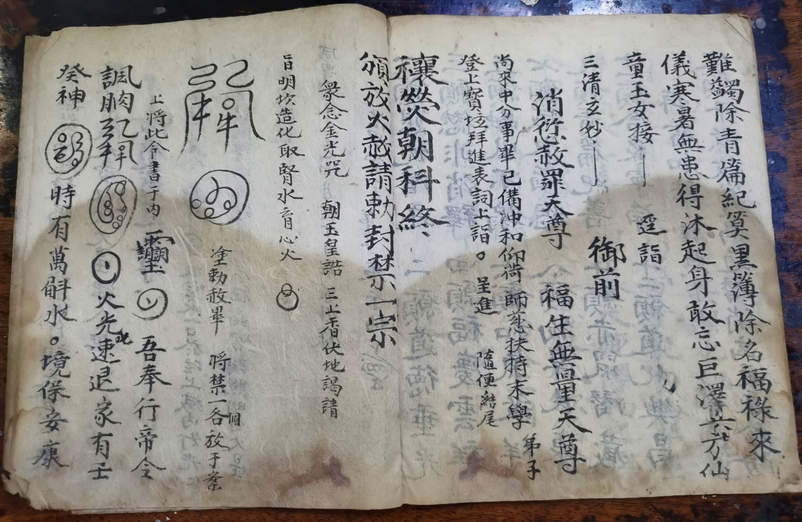 難蠲除青篇紀筭黑簿除名福祿來
儀寒暑無患得沐起身敢忘巨澤六方仙
童玉女接 逕詣
三清玄妙 御前
消愆赦罪天尊 福生無量天尊
尚來中分事畢已備冲和仰荷師慈扶持末學弟子
登上寶坛拜進表詞上詣。呈進 隨便結尾
禳熒朝科終
頒放火赦請勅封禁一宗
衆念金光咒 朝玉皇誥 三上香伏地謁請
旨明坎造化取腎水育心火
塗勅赦畢 將禁一各放于案
上將此令書于內 吾奉行帝令
火光速退家有壬
癸神 時有萬斛水。境保安康